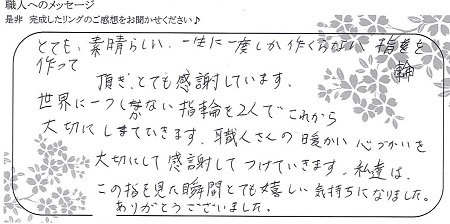 職人へのメッセージ
是非 完成したリングのご感想をお聞かせください♪
とても、素晴らしい、一生に一度しか作くらない 指輪を
作って
頂き、とても感謝しています。
世界に一つしかない指輪を2人でこれから
大切にしまていきます。職人さんの暖かい心づかいを
大切にして感謝してつけていきます。私達は、
この指を見た瞬間とても嬉しい気持ちになりました。
ありがとうございました。